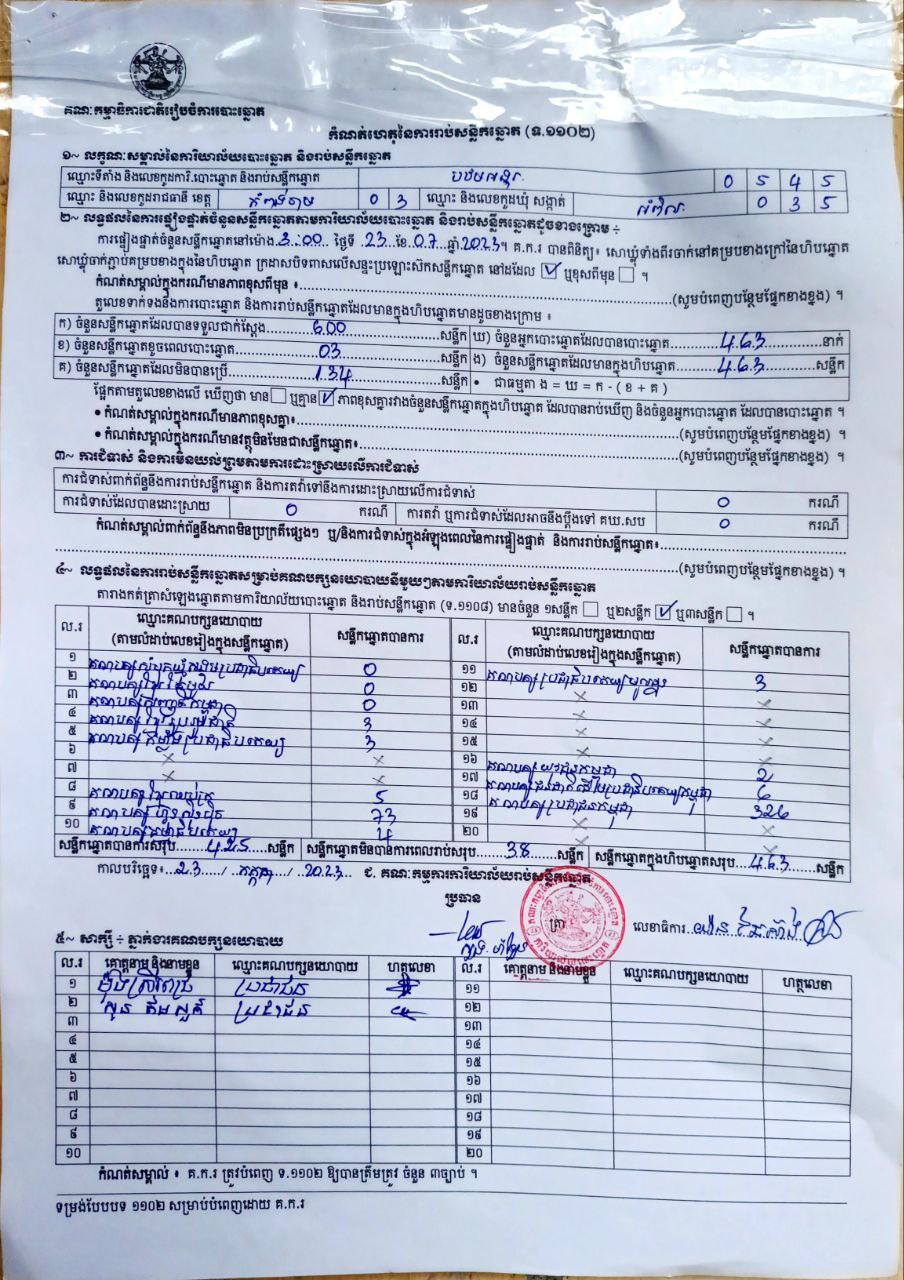 គណៈកម្មាធិការជាតិរៀបចំការបោះឆ្នោត
កំណត់ហេតុនៃការរាប់សន្លឹកឆ្នោត (ទ.១១០២)
១~ លក្ខណៈសម្គាល់នៃការិយាល័យបោះឆ្នោត និងរាប់សន្លឹកឆ្នោត
ឈ្មោះទីតាំង និងលេខកូដការិ.បោះឆ្នោត និងរាប់សន្លឹកឆ្នោត 0 5 4 5
ឈ្មោះ និងលេខកូដរាជធានី ខេត្ត កំពង់ចាម 0 3 ឈ្មោះ និងលេខកូដឃុំ សង្កាត់ 0 3 5
២~ លទ្ធផលនៃការផ្ទៀងផ្ទាត់ចំនួនសន្លឹកឆ្នោតតាមការិយាល័យបោះឆ្នោត និងរាប់សន្លឹកឆ្នោតដូចខាងក្រោម ÷
ការផ្ទៀងផ្ទាត់ចំនួនសន្លឹកឆ្នោតនៅម៉ោង 3:00 ថ្ងៃទី 23 ខែ 07 ឆ្នាំ 2023។ គ.ក.រ បានពិនិត្យ៖ សោឃ្លុំទាំងពីរចាក់នៅគម្របខាងក្រៅនៃហិបឆ្នោត
សោឃ្លុំចាក់ភ្ជាប់គម្របខាងក្នុងនៃហិបឆ្នោត ក្រដាសបិទពាសលើសន្ទះប្រឡោះស៊កសន្លឹកឆ្នោត នៅដដែល ☑ ឬខុសពីមុន ☐ ។
កំណត់សម្គាល់ក្នុងករណីមានភាពខុសពីមុន ៖ (សូមបំពេញបន្ថែមផ្នែកខាងខ្នង) ។
តួលេខទាក់ទងនឹងការបោះឆ្នោត និងការរាប់សន្លឹកឆ្នោតដែលមានក្នុងហិបឆ្នោតមានដូចខាងក្រោម ៖
ក) ចំនួនសន្លឹកឆ្នោតដែលបានទទួលជាក់ស្តែង 600 សន្លឹក ឃ) ចំនួនអ្នកបោះឆ្នោតដែលបានបោះឆ្នោត 463 នាក់
ខ) ចំនួនសន្លឹកឆ្នោតខូចពេលបោះឆ្នោត 03 សន្លឹក ង) ចំនួនសន្លឹកឆ្នោតដែលមានក្នុងហិបឆ្នោត 463 សន្លឹក
គ) ចំនួនសន្លឹកឆ្នោតដែលមិនបានប្រើ 134 សន្លឹក • ជាធម្មតា ង = ឃ = ក - ( ខ + គ )
ផ្អែកតាមតួលេខខាងលើ ឃើញថា មាន ☐ ឬគ្មាន ☑ ភាពខុសគ្នារវាងចំនួនសន្លឹកឆ្នោតក្នុងហិបឆ្នោត ដែលបានរាប់ឃើញ និងចំនួនអ្នកបោះឆ្នោត ដែលបានបោះឆ្នោត ។
• កំណត់សម្គាល់ក្នុងករណីមានភាពខុសគ្នា៖ (សូមបំពេញបន្ថែមផ្នែកខាងខ្នង) ។
• កំណត់សម្គាល់ក្នុងករណីមានវត្ថុមិនមែនជាសន្លឹកឆ្នោត៖ (សូមបំពេញបន្ថែមផ្នែកខាងខ្នង) ។
៣~ ការជំទាស់ និងការមិនយល់ព្រមតាមការដោះស្រាយលើការជំទាស់
ការជំទាស់ពាក់ព័ន្ធនឹងការរាប់សន្លឹកឆ្នោត និងការតវ៉ាទៅនឹងការដោះស្រាយលើការជំទាស់ 0 ករណី
ការជំទាស់ដែលបានដោះស្រាយ 0 ករណី ការតវ៉ា ឬការជំទាស់ដែលអាចនឹងប្តឹងទៅ គឃ.សប 0 ករណី
កំណត់សម្គាល់ពាក់ព័ន្ធនឹងភាពមិនប្រក្រតីផ្សេងៗ ឬ/និងការជំទាស់ក្នុងអំឡុងពេលនៃការផ្ទៀងផ្ទាត់ និងការរាប់សន្លឹកឆ្នោត៖
(សូមបំពេញបន្ថែមផ្នែកខាងខ្នង) ។
៤~ លទ្ធផលនៃការរាប់សន្លឹកឆ្នោតសម្រាប់គណបក្សនយោបាយនីមួយៗតាមការិយាល័យរាប់សន្លឹកឆ្នោត
តារាងកត់ត្រាសំឡេងឆ្នោតតាមការិយាល័យបោះឆ្នោត និងរាប់សន្លឹកឆ្នោត (ទ.១១០៨) មានចំនួន ១សន្លឹក ☐ ឬ២សន្លឹក ☑ ឬ៣សន្លឹក ☐ ។
ល.រ ឈ្មោះគណបក្សនយោបាយ (តាមលំដាប់លេខរៀងក្នុងសន្លឹកឆ្នោត) សន្លឹកឆ្នោតបានការ ល.រ ឈ្មោះគណបក្សនយោបាយ (តាមលំដាប់លេខរៀងក្នុងសន្លឹកឆ្នោត) សន្លឹកឆ្នោតបានការ
១ គណបក្សសំបុកឃ្មុំសង្គមប្រជាធិបតេយ្យ 0 ១១ គណបក្សប្រជាធិបតេយ្យមូលដ្ឋាន 3
២ គណបក្សខ្មែររួបរួម 0 ១២ × ×
៣ 0 ១៣ × ×
៤ គណបក្សខ្មែររួបរួមជាតិ 3 ១៤ × ×
៥ គណបក្សកម្លាំងប្រជាធិបតេយ្យ 3 ១៥ × ×
៦ × × ១៦ គណបក្សយុវជនកម្ពុជា 2
៧ × × ១៧ គណបក្សជនជាតិដើមប្រជាធិបតេយ្យកម្ពុជា 6
៨ គណបក្សខ្មែរអភិរក្ស 5 ១៨ គណបក្សប្រជាជនកម្ពុជា 326
៩ គណបក្សហ៊្វុនស៊ិនប៉ិច 73 ១៩ × ×
១០ គណបក្សធម្មាធិបតេយ្យ 4 ២០ × ×
សន្លឹកឆ្នោតបានការសរុប 425 សន្លឹក សន្លឹកឆ្នោតមិនបានការពេលរាប់សរុប 38 សន្លឹក សន្លឹកឆ្នោតក្នុងហិបឆ្នោតសរុប 463 សន្លឹក
កាលបរិច្ឆេទ៖ 23 / កក្កដា / 2023 ជ. គណៈកម្មការការិយាល័យរាប់សន្លឹកឆ្នោត
ប្រធាន
ត្រា លេខាធិការ
៥~ សាក្សី ÷ ភ្នាក់ងារគណបក្សនយោបាយ
ល.រ គោត្តនាម និងនាមខ្លួន ឈ្មោះគណបក្សនយោបាយ ហត្ថលេខា ល.រ គោត្តនាម និងនាមខ្លួន ឈ្មោះគណបក្សនយោបាយ ហត្ថលេខា
១ ប្រជាជន ១១
២ ប្រជាជន ១២
៣ ១៣
៤ ១៤
៥ ១៥
៦ ១៦
៧ ១៧
៨ ១៨
៩ ១៩
១០ ២០
កំណត់សម្គាល់ ៖ គ.ក.រ ត្រូវបំពេញ ទ.១១០២ ឱ្យបានត្រឹមត្រូវ ចំនួន ៣ច្បាប់ ។
ទម្រង់បែបបទ ១១០២ សម្រាប់បំពេញដោយ គ.ក.រ